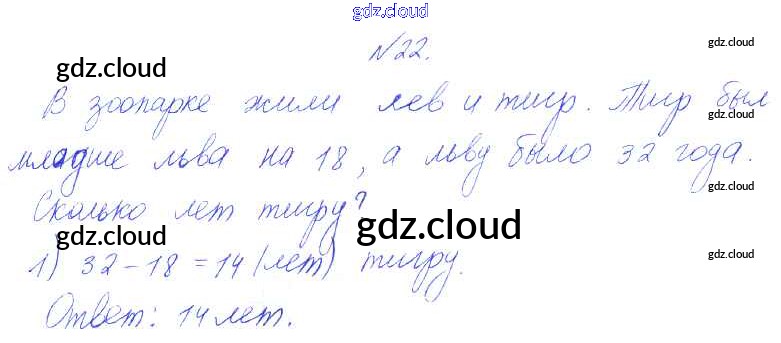 gdz.cloud
№22.
gdz.cloud
gdz.cloud
В зоопарке жили лев и тигр. Тигр был
gdz.cloud
младше льва на 18, а льву было 32 года.
gdz.cloud
Сколько лет тигру?
gdz.cloud
gdz.cloud
1) 32-18=14 (лет) тигру.
Ответ: 14 лет.